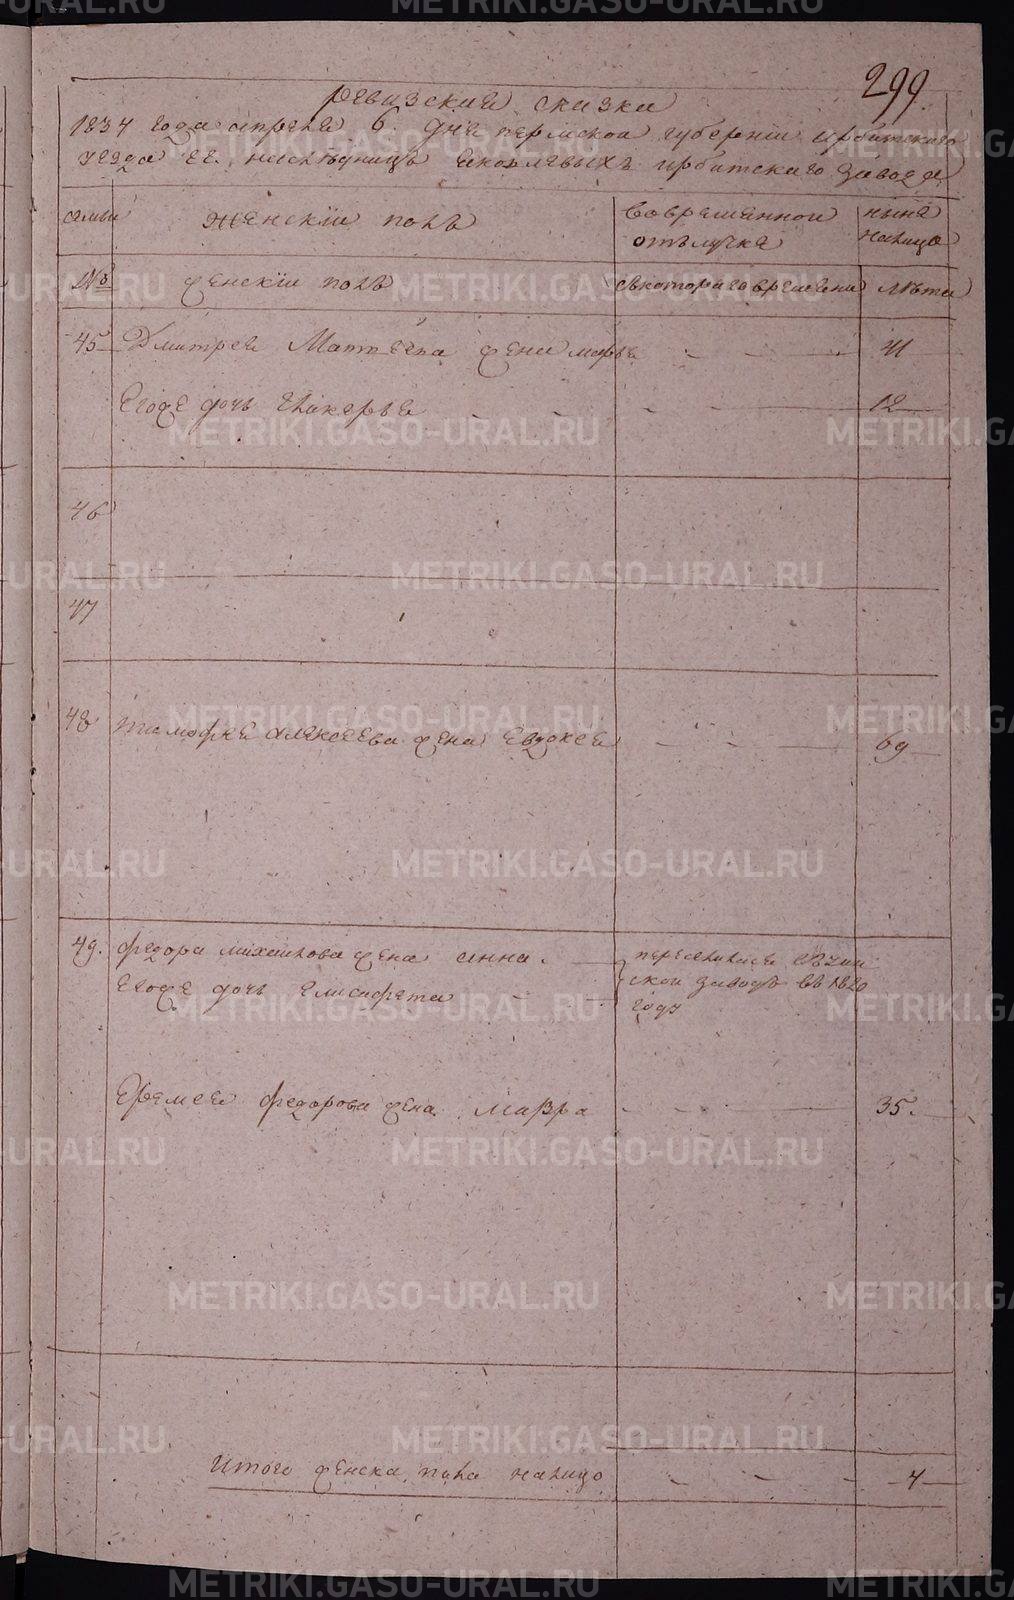 299
ревизские сказки
1834 года апреля 6 дня пермской губернии ирбитского
уезда г.г. наследницъ яковлевыхъ ирбитского завода
семьи женскiи полъ вовременной ныне
отълучке налицо
№ женскiи полъ скоторагo времени лѣта
45 Дмитрея Матвеева жена марья - - - 41
Егоже дочь гликерья - - - 12
46
47
48 тимофея алексеева жена евдокея - - - 69
49. федора михаилова жена анна.
Егоже дочь елисафета
переселились
ской заводъ въ 1820
году
Еремея федорова жена мавра - - - 35.
Итого женска пола налицо - - - 4
METRIKI.GASO-URAL.RU